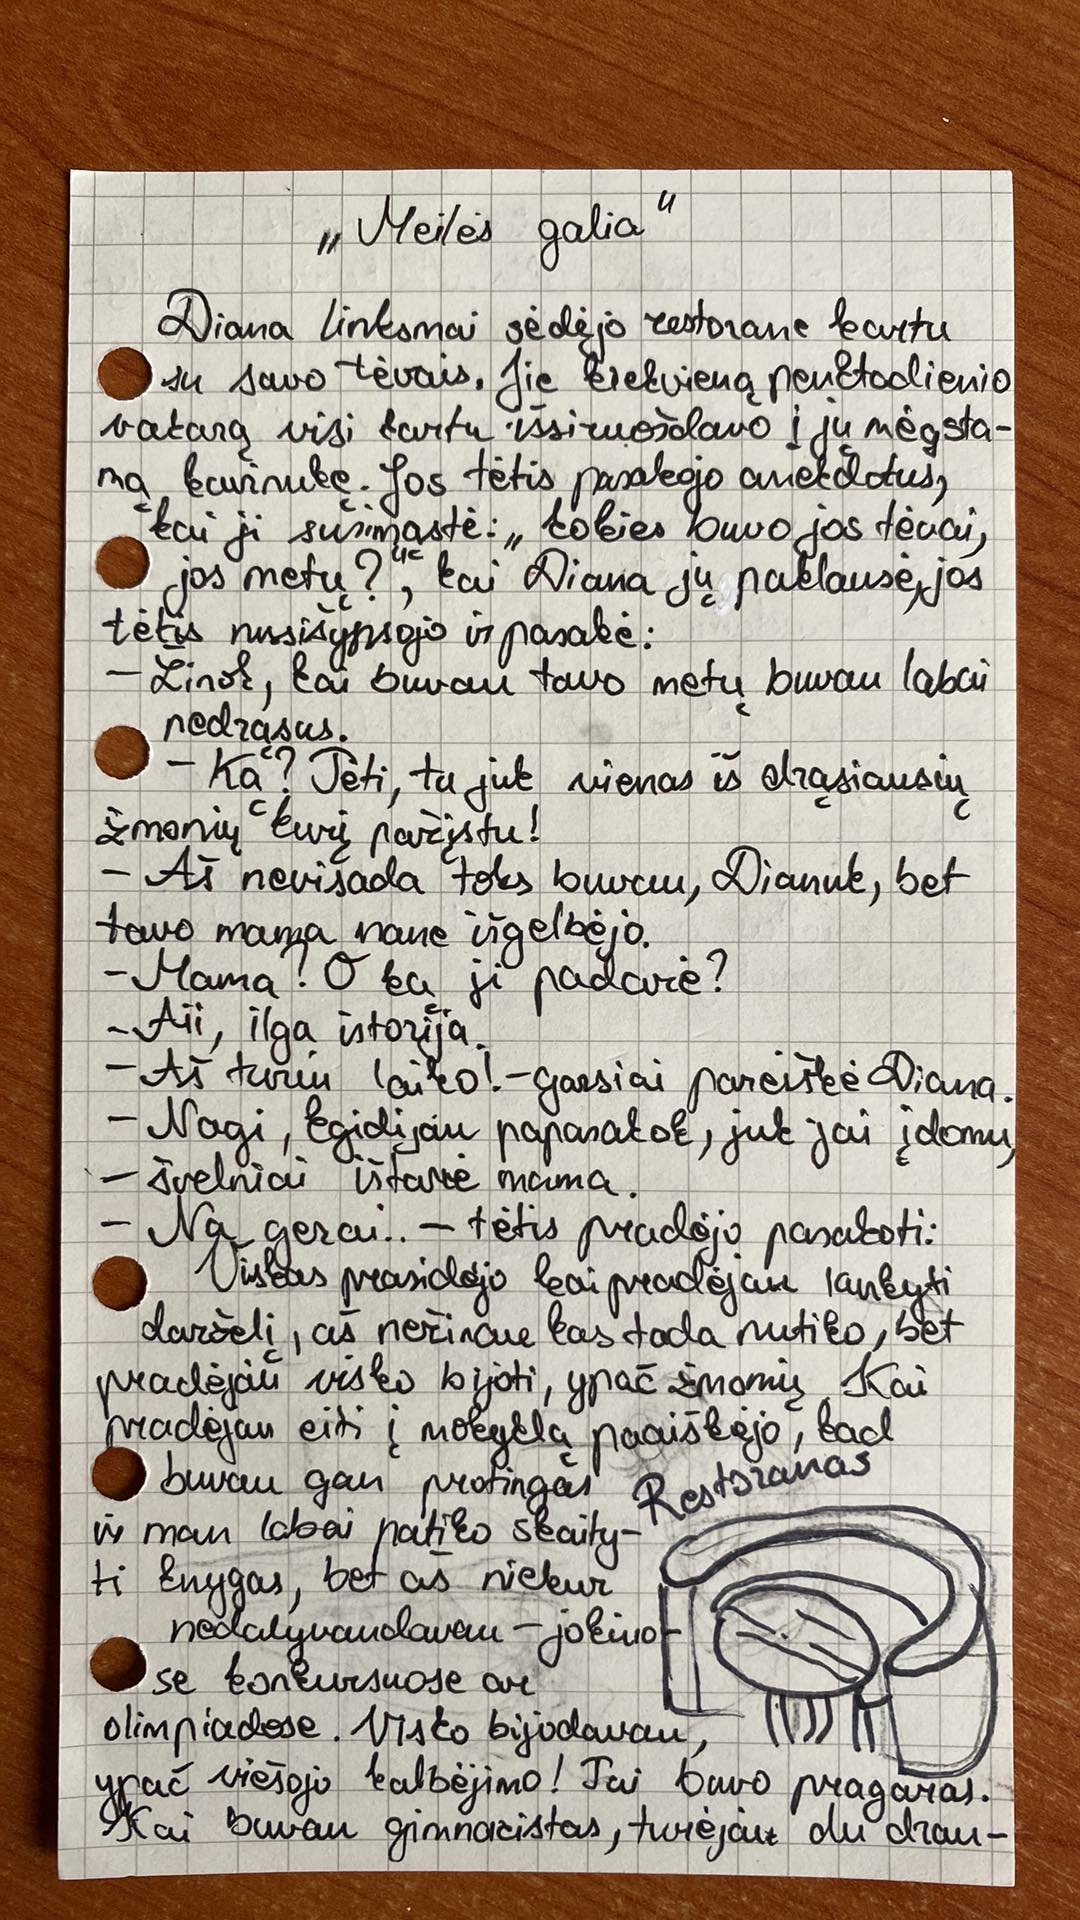 „Meilės galia“
Diana linksmai sėdėjo restorane kartu
su savo tėvais. Jie kiekvieną penktadienio
vakarą visi kartu išsiruošdavo į jų mėgsta-
mą kavinukę. Jos tėtis pasakojo anekdotus,
kai ji susimąstė: „ kokies buvo jos tėvai,
jos metų?“, kai Diana jų paklausė, jos
tėtis nusišypsojo ir pasakė:
– Žinok, kai buvau tavo metų buvau labai
nedrąsus.
– Ką? Tėti, tu juk vienas iš drąsiausių
žmonių kurį pažįstu!
– Aš nevisada toks buvau, Dianuk, bet
tavo mama mane išgelbėjo.
– Mama? O ką ji padarė?
– Aii, ilga istorija.
– Aš turiu laiko! – garsiai pareiškė Diana.
– Nagi, Egidijau papasakok, juk jai įdomu,
– švelniai ištarė mama.
– Na gerai.. – tėtis pradėjo pasakoti:
Viskas prasidėjo kai pradėjau lankyti
darželį, aš nežinau kas tada nutiko, bet
pradėjau visko bijoti, ypač žmonių. Kai
pradėjau eiti į mokyklą paaiškėjo, kad
buvau gan protingas
ir man labai patiko skaity-
ti knygas, bet aš niekur
nedalyvaudavau – jokiuo-
se konkursuose ar
olimpiadose. Visko bijodavau,
ypač viešojo kalbėjimo! Tai buvo pragaras.
Kai buvau gimnazistas, turėjau du drau-
Restoranas